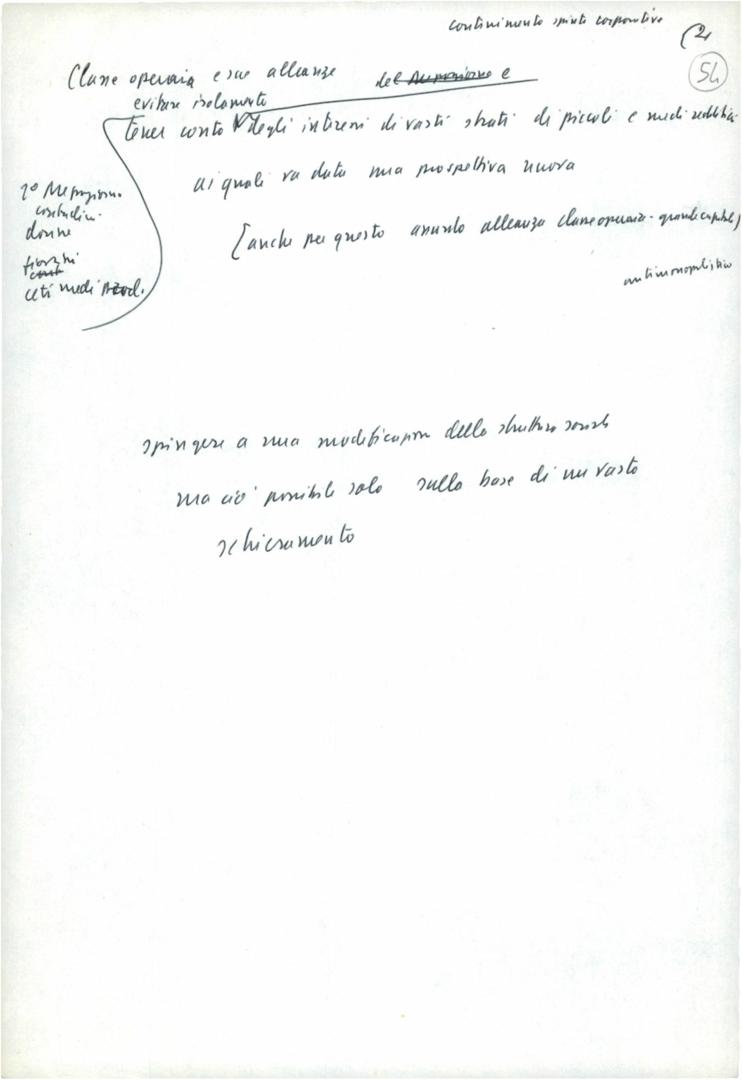 contenimento spinte corporative
(2
54
Classe operaia e sue alleanze del Meridione e
evitare isolamento
tener conto degli interessi di vasti strati di piccoli e medi redditi
ai quali va data una prospettiva nuova
[anche per questo assurdo alleanza classe operaia - grande capitale]
antimonopolistico
1° Mezzogiorno
contadini
donne
giovani
ceti medi prod.
spingere a una modificazione della struttura sociale
ma ciò possibile solo sulla base di un vasto
schieramento